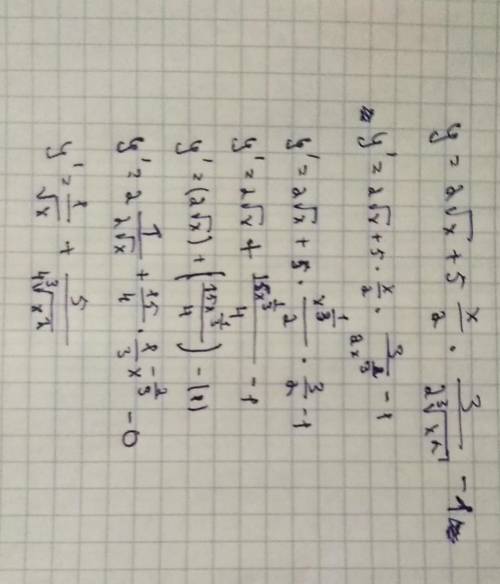 y = 2√x + 5 x/2 · 3/(2∛(x²)) - 1
y' = 2√x + 5 · x/2 · 3/(2x^(2/3)) - 1
y' = 2√x + 5 · x^(1/3)/2 · 3/2 - 1
y' = 2√x + 15x^(1/3)/4 - 1
y' = (2√x) + (15x^(1/3)/4) - (1)
y' = 2 1/(2√x) + 15/4 · 1/3 x^(-2/3) - 0
y' = 1/√x + 5/(4∛(x²))